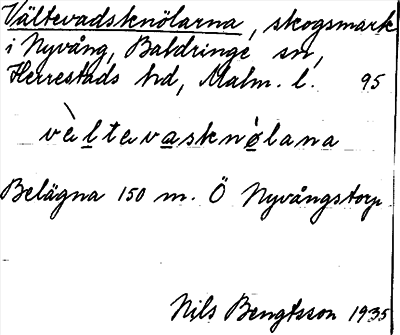 Vältevadsknölarna, skogsmark
i Nyvång, Baldringe sn,
Herrestads hd, Malm. l. 95
vàltevasknølana
Belägna 150 m. Ö Nyvångstorp
Nils Bengtsson 1935